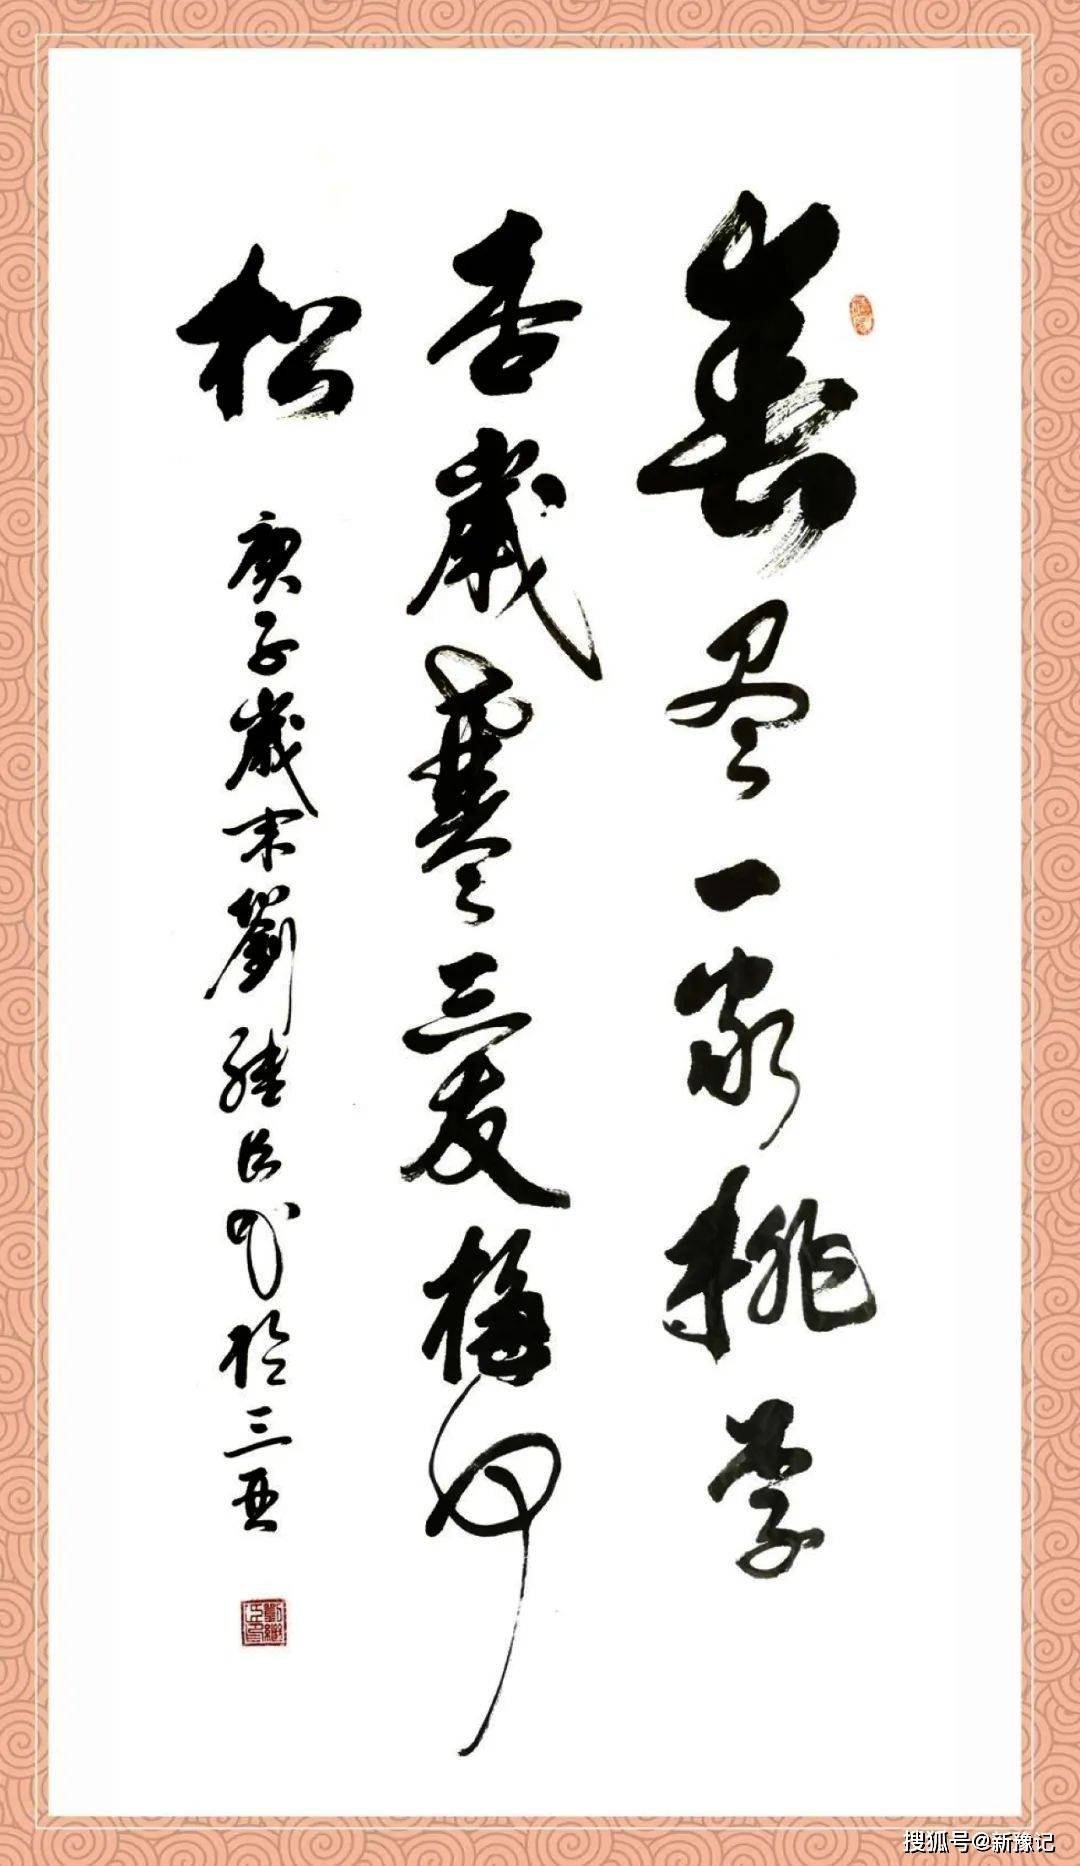 春尽一家桃李
杏歲寒三友梅竹
松
庚子歲末劉继臣书於三亚
搜狐号@新豫记